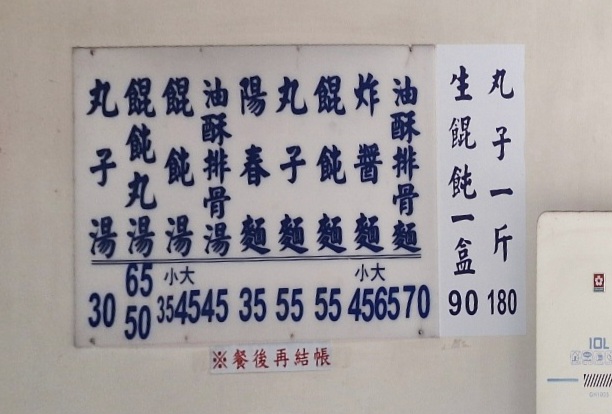 丸子一斤
180
生餛飩一盒
90
油酥排骨麵
70
炸醬麵
小大
45 65
餛飩麵
55
丸子麵
55
陽春麵
35
油酥排骨湯
45
餛飩湯
小大
35 45
餛飩丸湯
65
50
丸子湯
30
※餐後再結帳
10L